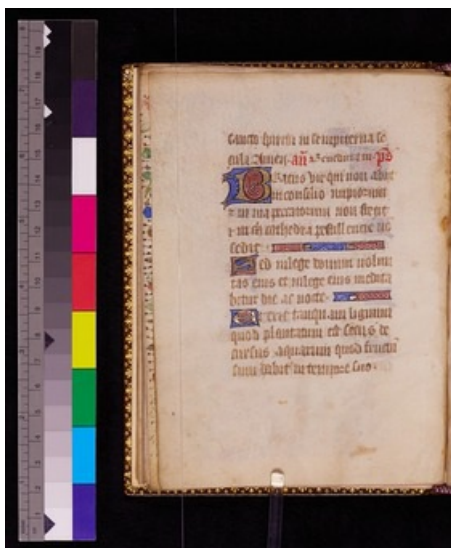 sancto spiritu in sempiterna se
cula Amen. añ Benedicta tu. ps
Beatus vir qui non abiit
in consilio impiorum
⁊ in via peccatorum non stetit
⁊ in cathedra pestilencie no
sedit
Sed in lege domini volun
tas eius et in lege eius medita
bitur die ac nocte
Et erit tanquam lignum
quod plantatum est secus de
cursus aquarum quod fructū
suum dabit in tempore suo